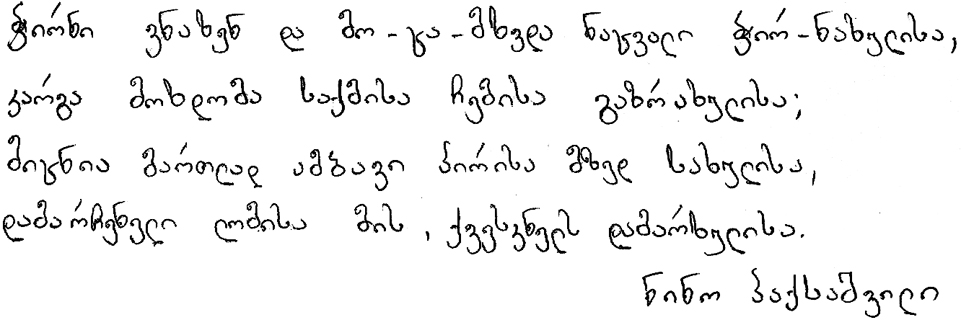 ჭირნი ვნახენ და მო-ცა-მხვდა ნაცვალი ჭირ-ნახულისა,
კარგა მოხდომა საქმისა ჩემისა განზრახულისა;
მიცნია მართლად ამბავი პირისა მზედ სახულისა,
დამარჩენელი ლომისა მის, ქვესკნელს დამარხულისა.
ნინო პაქსაშვილი